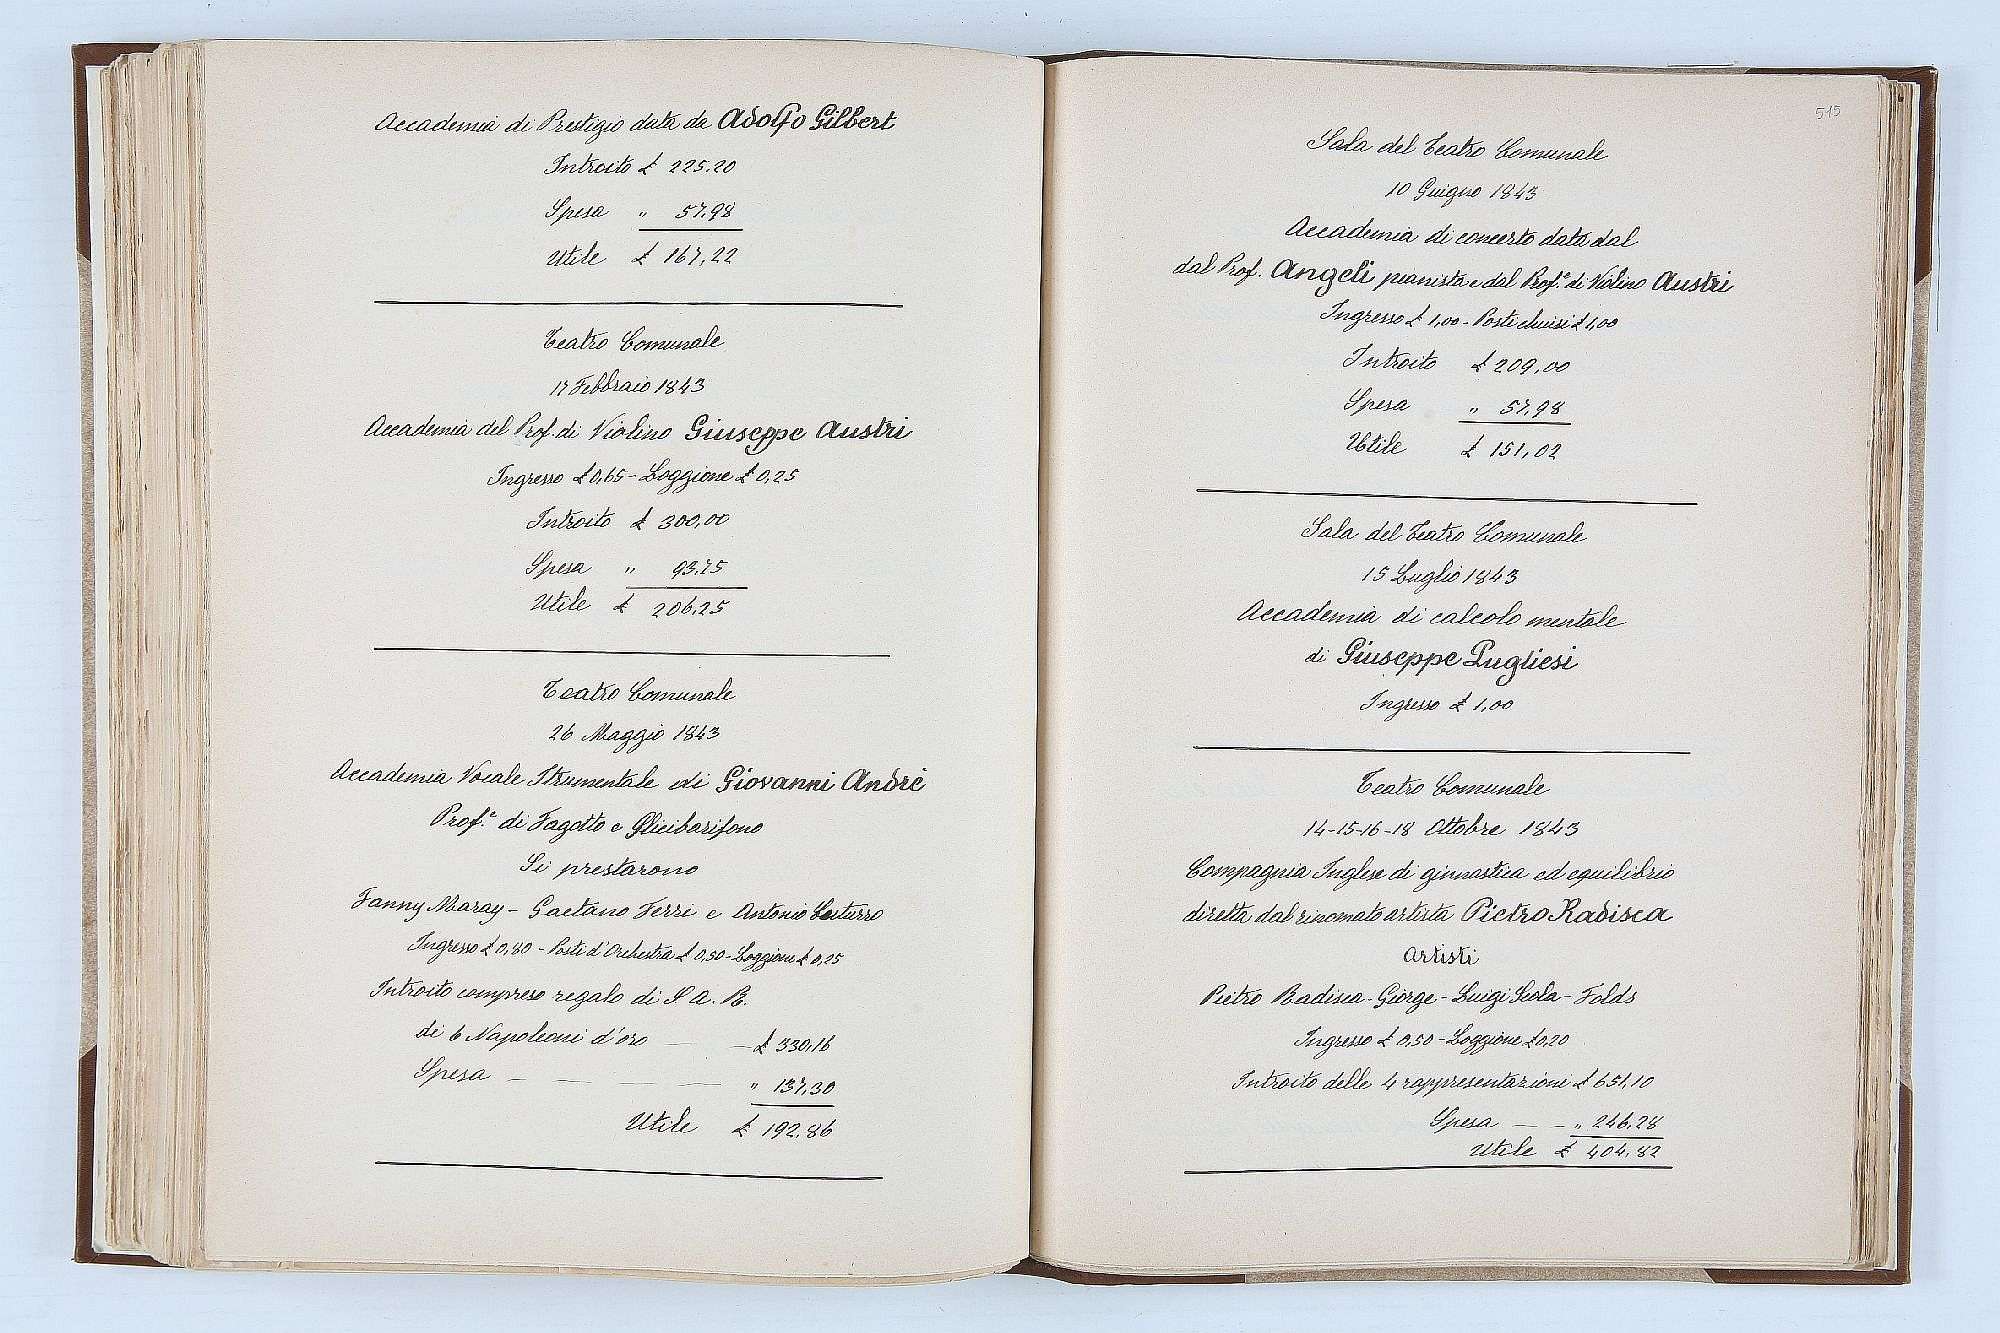 Accademia di Prestigio data da Adolfo Gilbert
Introito £ 225.20
Spesa " 57.98
Utile £ 167,22
Teatro Comunale
17 Febbraio 1843
Accademia del Prof. di Violino Giuseppe Austri
Ingresso £ 0,65 - Loggione £ 0,25
Introito £ 300,00
Spesa " 93.75
Utile £ 206,25
Teatro Comunale
26 Maggio 1843
Accademia Vocale Strumentale di Giovanni Andrè
Prof.e di Fagotto e Glicibarifono
Si prestarono
Fanny Maray - Gaetano Ferri e Antonio
Ingresso £ 0,80 - Posti d'Orchestra £ 0,50 - Loggione £ 0,25
Introito compreso regalo di S. A. R.
di 6 Napoleoni d'oro — — £ 330,16
Spesa — — — — — " 137,30
Utile £ 192.86
515
Sala del Teatro Comunale
10 Guigno 1843
Accademia di concerto data dal
dal Prof. Angeli pianista e dal Prof.e di Violino Austri
Ingresso £ 1,00 - Posti chiusi £ 1,00
Introito £ 209,00
Spesa " 57,98
Utile £ 151,02
Sala del Teatro Comunale
15 Luglio 1843
Accademia di calcolo mentale
di Giuseppe Pugliesi
Ingresso £ 1,00
Teatro Comunale
14-15-16-18 Ottobre 1843
Compagnia Inglese di ginnastica ed equilibrio
diretta dal rinomato artista Pietro Radisca
Artisti
Pietro Radisca - Giorge - Luigi Scola - Folds
Ingresso £ 0,50 - Loggione £ 0,20
Introito delle 4 rappresentazioni £ 651,10
Spesa — — " 246,28
Utile £ 404,82